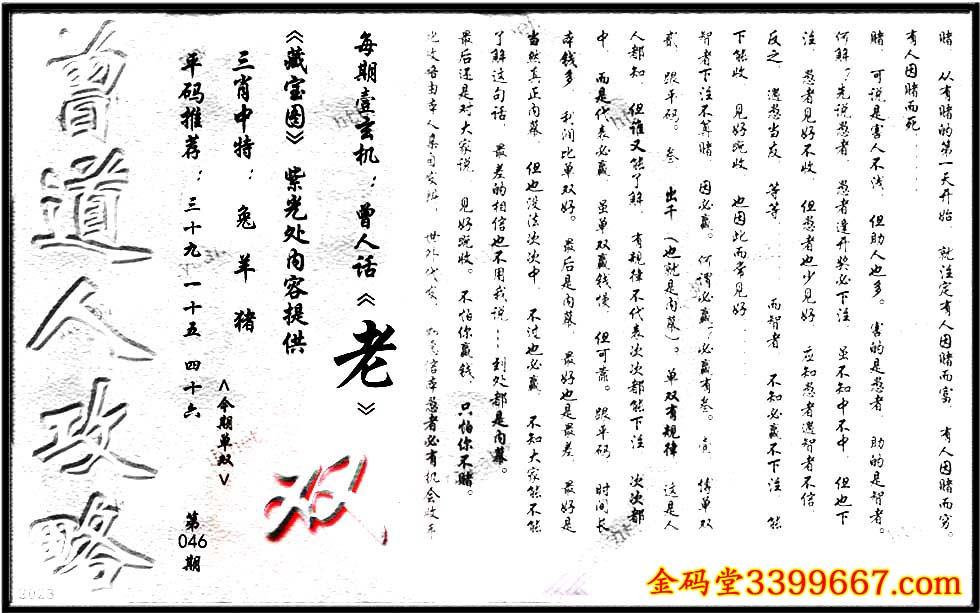 赌 从有赌的第一天开始 就注定有人因赌而富 有人因赌而穷。
有人因赌而死......
赌 可说是害人不浅 但助人也多。害的是愚者 助的是智者。
何解？先说愚者 愚者逢开奖必下注 虽不知中不中 但也下
注 愚者见好不收 但愚者也少见好 应知愚者遇智者不信
反之 遇愚当友 等等...... 而智者 不知必赢不下注 能
下能收 见好就收 也因此而常见好......
智者下注不算赌 因必赢。何谓必赢 必赢有叁。壹 博单双
贰 跟平码。叁 出千（也就是内幕）。单双有规律 这是人
人都知 但谁又能了解 有规律不代表次次都能下注 次次都
中 而是代表必赢 虽单双赢钱慢 但可靠。跟平码 时间长
本钱多 利润比单双好。最后是内幕 最好也是最差 最好是
当然真正内幕 但也没法次次中 不过也必赢 不知大家能不能
了解这句话 最差的相信也不用我说...到处都是内幕。
最后还是对大家说 见好就收。不怕你赢钱 只怕你不赌。
此攻略由本人集团发起 世外代发 愚者必有机会收年
每期壹玄机：曾人话《老》
《藏宝图》紫光处内容提供
三肖中特：兔 羊 猪
<今期单双>
双
平码推荐：三十九 一十五 四十六
第046期
曾道人攻略
2023
金码堂3399667.com